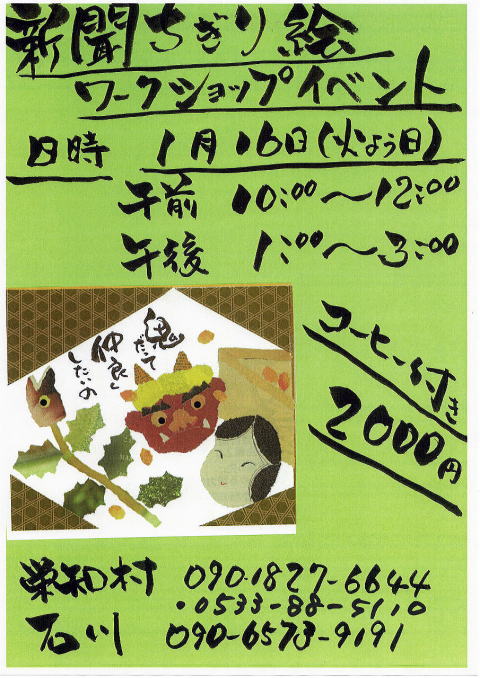 新聞ちぎり絵
ワークショップイベント
日時 1月16日(火よう日)
午前 10:00～12:00
午後 1:00～3:00
鬼だって
仲良く
したいの
コーヒー付き
2000円
栄知村 090-1827-6644
・0533-88-5110
石川 090-6573-9191